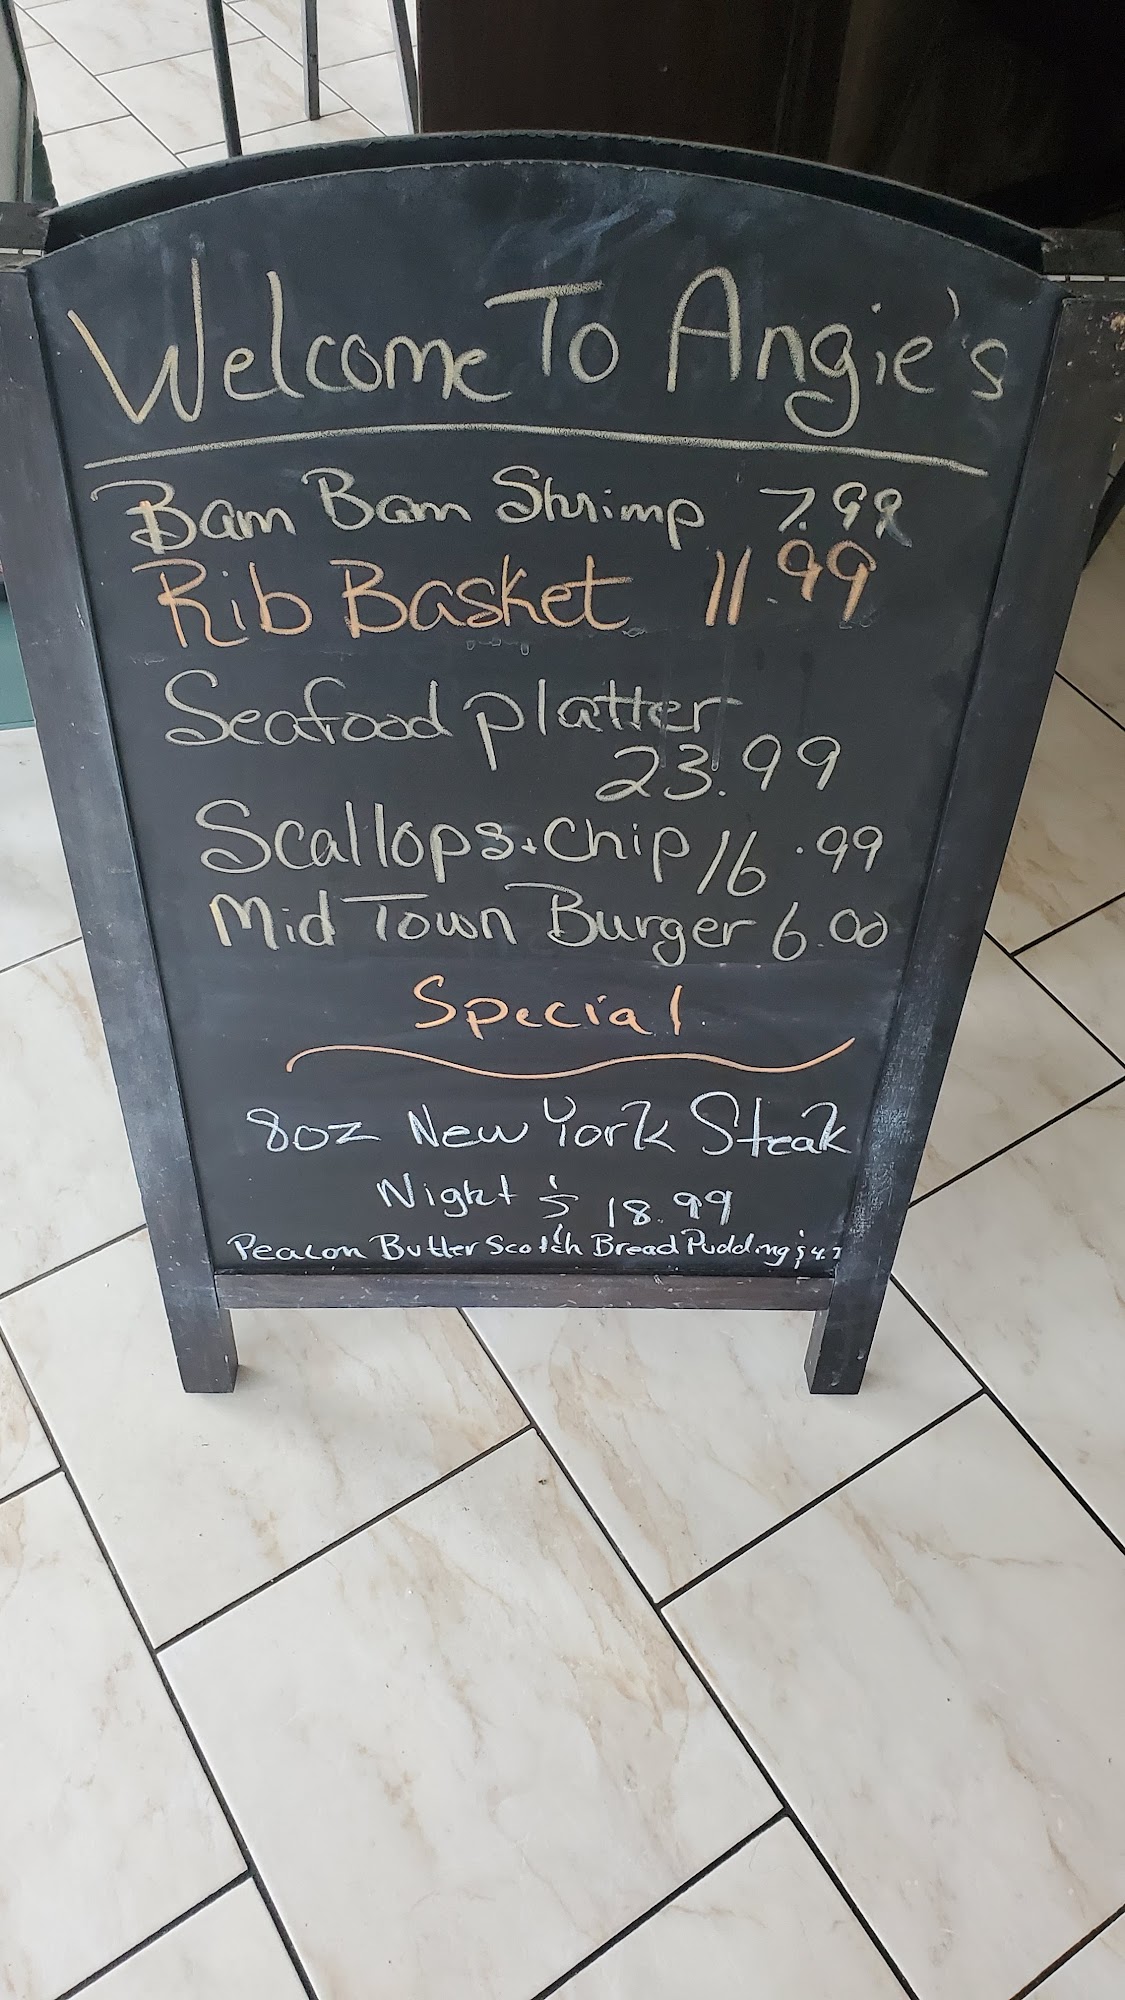 Welcome To Angie's
Bam Bam Shrimp 7.99
Rib Basket 11.99
Seafood platter
23.99
Scallops + Chip 16.99
Mid Town Burger 6.00
Special
8oz New York Steak
Night $ 18.99
Peacon Butter Scotch Bread Pudding $4.